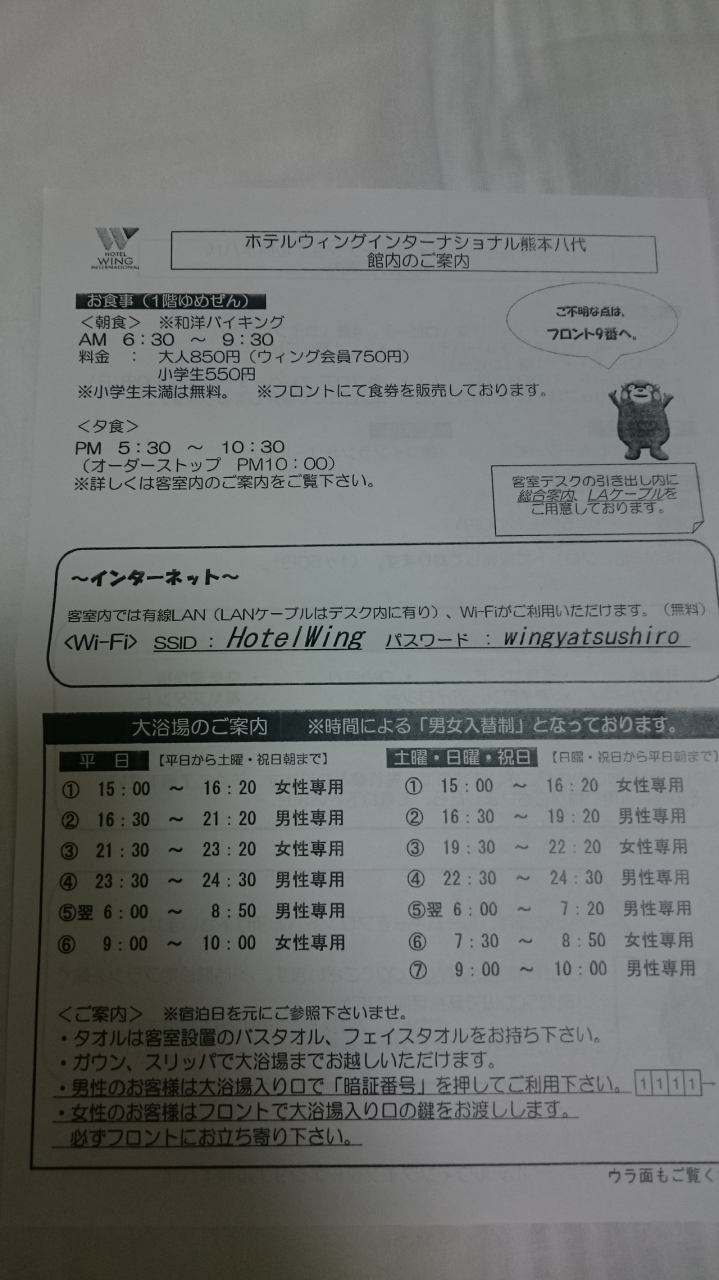 HOTEL
WING
INTERNATIONAL
ホテルウィングインターナショナル熊本八代
館内のご案内
お食事（1階ゆめぜん）
＜朝食＞　※和洋バイキング
AM　6：30　～　9：30
料金　：　大人850円（ウィング会員750円）
小学生550円
※小学生未満は無料。　※フロントにて食券を販売しております。
ご不明な点は、
フロント9番へ。
＜夕食＞
PM　5：30　～　10：30
（オーダーストップ　PM10：00）
※詳しくは客室内のご案内をご覧下さい。
客室デスクの引き出し内に
総合案内、LAケーブルを
ご用意しております。
～インターネット～
客室内では有線LAN（LANケーブルはデスク内に有り）、Wi-Fiがご利用いただけます。（無料）
<Wi-Fi>　SSID：HotelWing　パスワード：wingyatsushiro
大浴場のご案内　※時間による「男女入替制」となっております。
平　日　【平日から土曜・祝日朝まで】
①　15：00　～　16：20　女性専用
②　16：30　～　21：20　男性専用
③　21：30　～　23：20　女性専用
④　23：30　～　24：30　男性専用
⑤翌　6：00　～　8：50　男性専用
⑥　9：00　～　10：00　女性専用
土曜・日曜・祝日　【日曜・祝日から平日朝まで】
①　15：00　～　16：20　女性専用
②　16：30　～　19：20　男性専用
③　19：30　～　22：20　女性専用
④　22：30　～　24：30　男性専用
⑤翌　6：00　～　7：20　男性専用
⑥　7：30　～　8：50　女性専用
⑦　9：00　～　10：00　男性専用
＜ご案内＞　※宿泊日を元にご参照下さいませ。
・タオルは客室設置のバスタオル、フェイスタオルをお持ち下さい。
・ガウン、スリッパで大浴場までお越しいただけます。
・男性のお客様は大浴場入り口で「暗証番号」を押してご利用下さい。　1 1 1 1→
・女性のお客様はフロントで大浴場入り口の鍵をお渡しします。
必ずフロントにお立ち寄り下さい。
ウラ面もご覧く